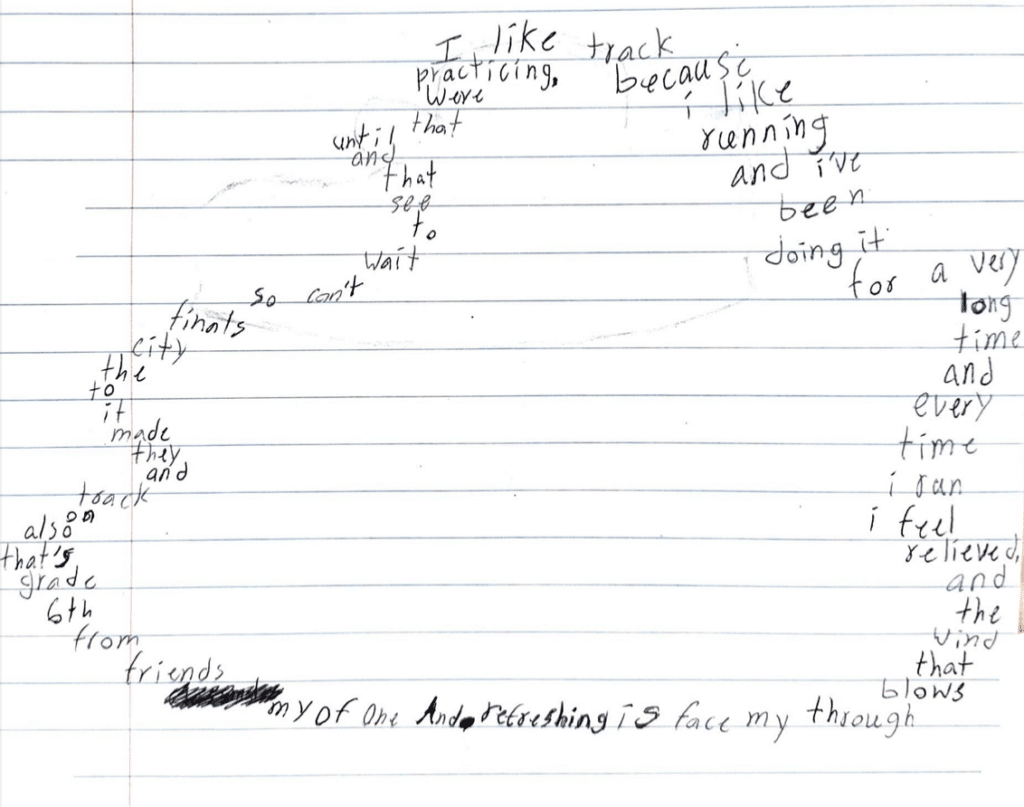 I like track
because
i like
running
and i've
been
doing it
for a very
long
time
and
every
time
i ran
i feel
relieved,
and
the
wind
that
blows
through my face is refreshing. And One of my
friends
from
6th
grade
that's
also on
track
and
they
made
it
to
the
city
finals
so can't
wait
to
see
that
and
until
that
were
practicing.